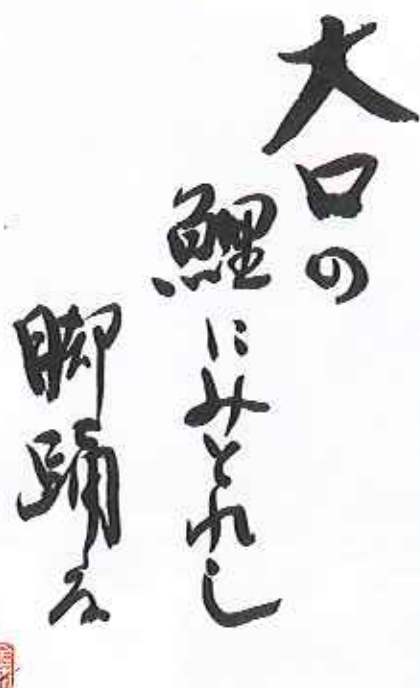 大口の
鯉にみとれし
脚踊る